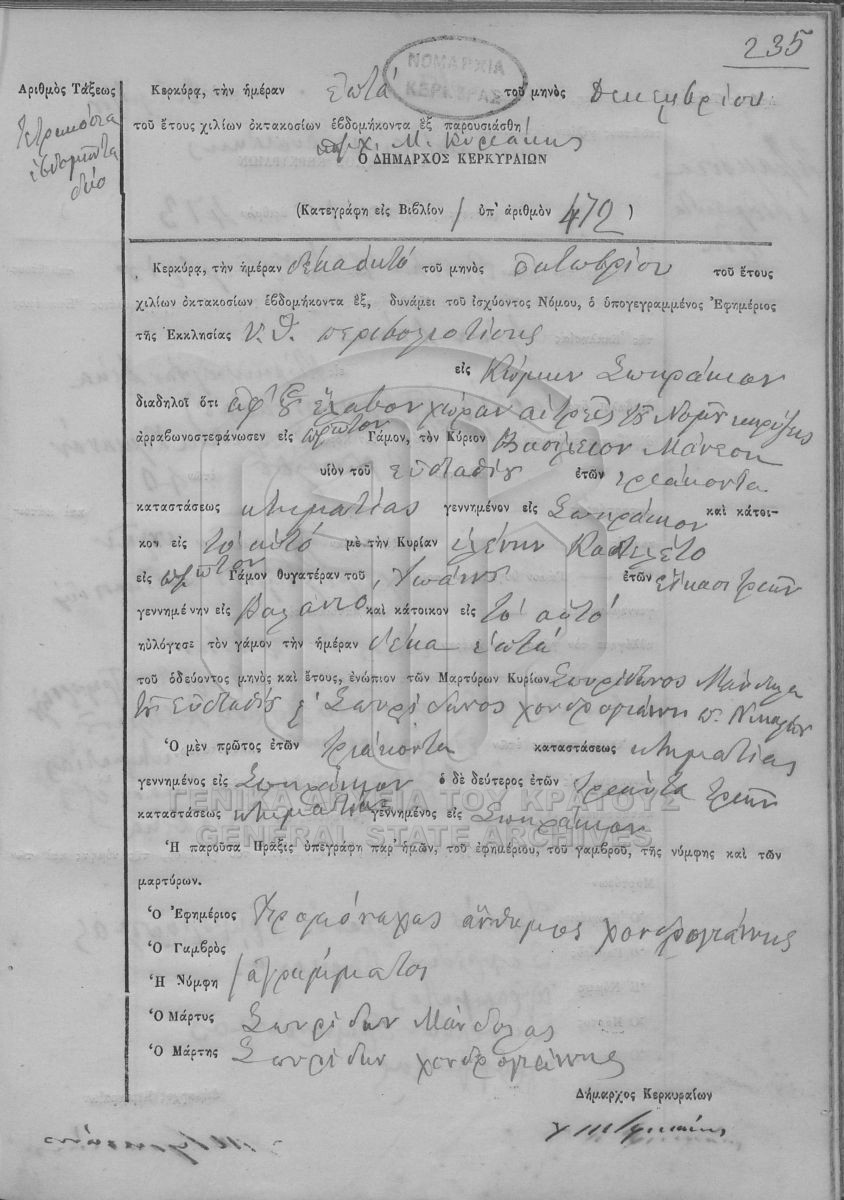 235
ΝΟΜΑΡΧΙΑ
ΚΕΡΚΥΡΑΣ
Ἀριθμὸς Τάξεως
τετρακόσια
ἑβδομῆντα
δύο
Κερκύρᾳ, τὴν ἡμέραν ἑπτά τοῦ μηνὸς Δεκεμβρίου
τοῦ ἔτους χιλίων ὀκτακοσίων ἑβδομήκοντα ἓξ παρουσιάσθη
Ο ΔΗΜΑΡΧΟΣ ΚΕΡΚΥΡΑΙΩΝ
(Κατεγράφη εἰς Βιβλίον / ὑπ' ἀριθμὸν 472)
Κερκύρᾳ, τὴν ἡμέραν δέκα ὀκτό τοῦ μηνὸς Ὀκτωβρίου τοῦ ἔτους
χιλίων ὀκτακοσίων ἑβδομήκοντα ἓξ, δυνάμει τοῦ ἰσχύοντος Νόμου, ὁ ὑπογεγραμμένος Ἐφημέριος
τῆς Ἐκκλησίας Υ. Θ. περιβολιοτίσης
εἰς Κώμην Σωκράκιον
διαδηλοῖ ὅτι ἀφ' οὗ ἔλαβον χώραν αἱ τρεῖς
ἀρραβωνοστεφάνωσεν εἰς πρῶτον Γάμον, τὸν Κύριον Βασίλειον
υἱὸν τοῦ Εὐσταθίου ἐτῶν τριάκοντα
καταστάσεως κτηματίας γεννημένον εἰς Σωκράκιον καὶ κάτοι-
κον εἰς τὸ αὐτό μὲ τὴν Κυρίαν ἑλένην
εἰς πρῶτον Γάμον θυγατέραν τοῦ Ἰωάννου ἐτῶν εἴκοσι τριῶν
γεννημένην εἰς Βαλανιό καὶ κάτοικον εἰς τὸ αὐτό
ηὐλόγησε τὸν γάμον τὴν ἡμέραν δέκα ἑπτά
τοῦ ὁδεύοντος μηνὸς καὶ ἔτους, ἐνώπιον τῶν Μαρτύρων Κυρίων Σπυρίδωνος Μάνδυλα
τοῦ Εὐσταθίου Σπυρίδωνος χονδρογιάννη π. Νικολάου
Ὁ μὲν πρῶτος ἐτῶν τριάκοντα καταστάσεως κτηματίας
γεννημένος εἰς Σωκράκιον ὁ δὲ δεύτερος ἐτῶν τριάντα τριῶν
καταστάσεως κτηματίας γεννημένος εἰς Σωκράκιον
ΓΕΝΙΚΑ ΑΡΧΕΙΑ ΤΟΥ ΚΡΑΤΟΥΣ
GENERAL STATE ARCHIVES
Ἡ παροῦσα Πράξις ὑπεγράφη παρ' ἡμῶν, τοῦ ἐφημέριου, τοῦ γαμβροῦ, τῆς νύμφης καὶ τῶν
μαρτύρων.
Ὁ Ἐφημέριος Ἱερομόναχος ἄνθιμος χονδρογιάννης
Ὁ Γαμβρὸς
Ἡ Νύμφη / ἀγράμματοι
Ὁ Μάρτυς Σπυρίδων Μάνδολας
Ὁ Μάρτης Σπυρίδων χονδρογιάννης
Δήμαρχος Κερκυραίων